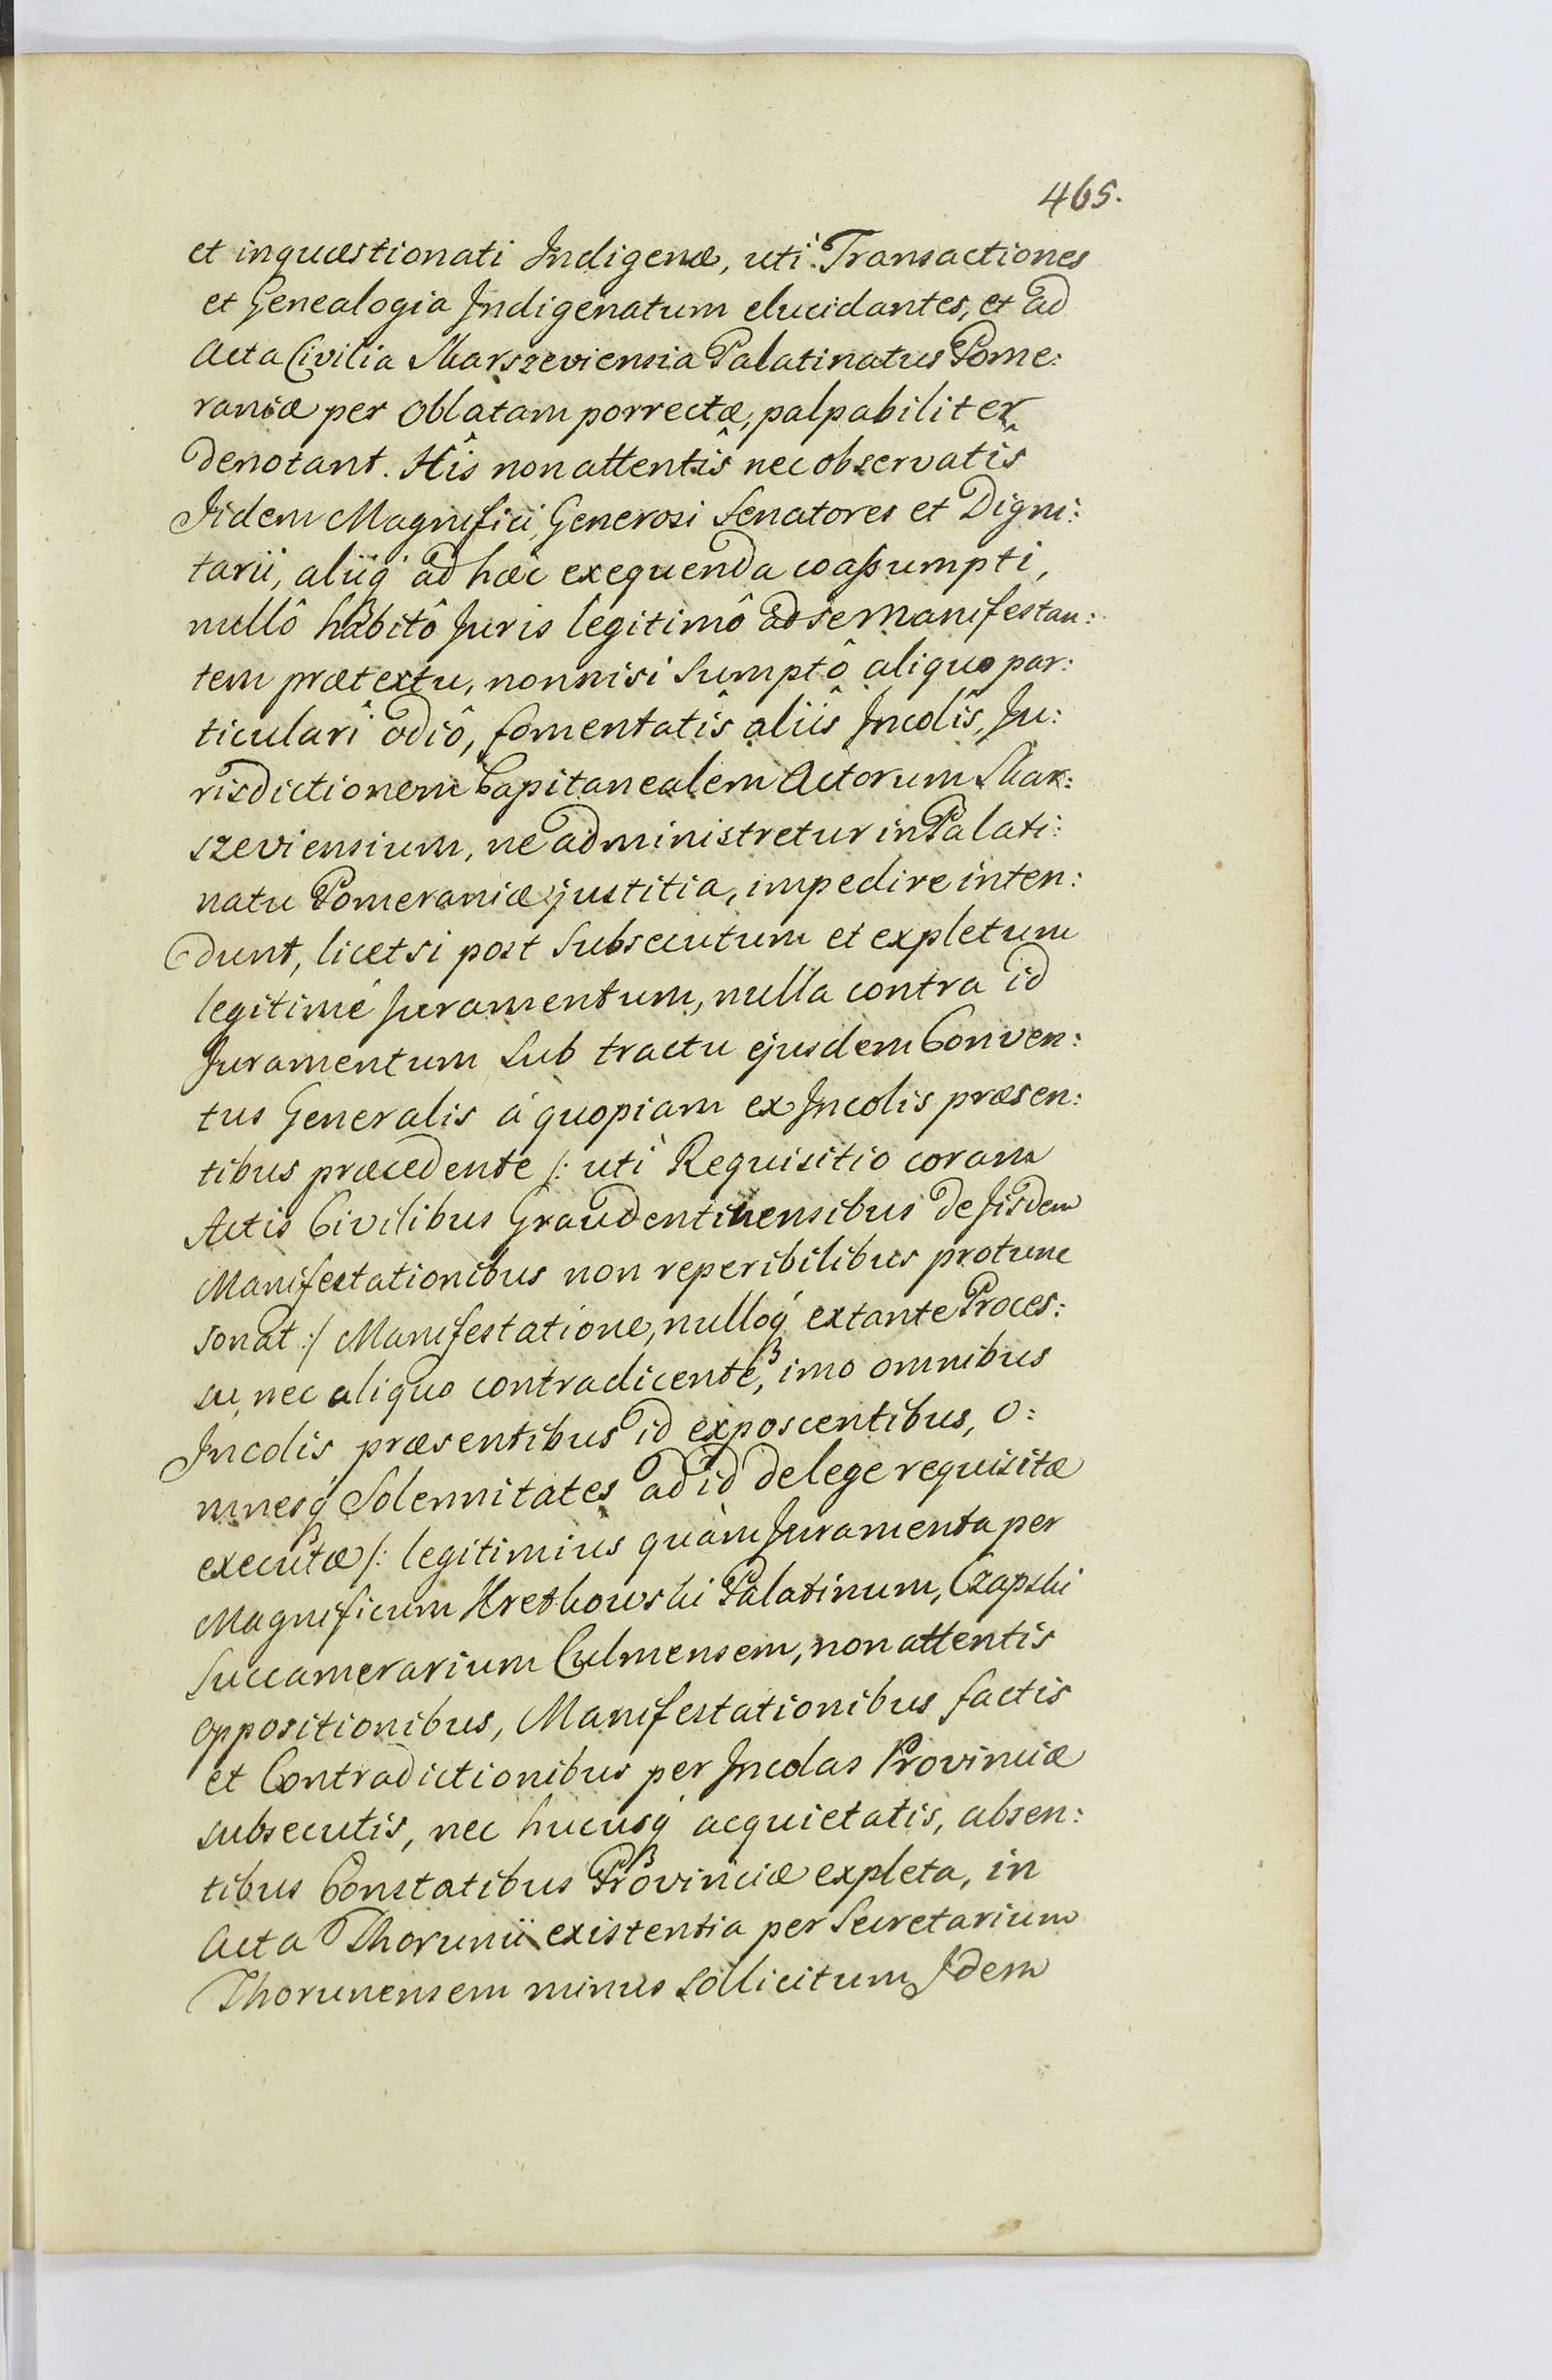 465.
et inquæstionati Indigenæ, uti Transactiones
et Genealogia Indigenatum elucidantes, et ad
Acta Civilia Skarszeviensia Palatinatus Pome:
raniæ per Oblatam porrectæ, palpabiliter
denotant. Hîs non attentîs nec observatîs
Iidem Magnifici, Generosi Senatores et Digni:
tarii, aliiq' ad hæc exequenda coaßumpti,
nullô habitô Juris legitimô ad se manifestan:
tem prætextu, nonnisi sumptô aliquo par:
ticularî odiô, fomentatîs aliîs Incolîs, Ju:
risdictionem Capitanealem Actorum Skar:
szeviensium, ne administretur in Palati:
natu Pomeraniæ justitia, impedire inten:
dunt, licet si post subsecutum et expletum
legitimé Juramentum, nulla contra id
Juramentum sub tractu ejusdem Conven:
tus Generalis á quopiam ex Incolis præsen:
tibus præcedente /: uti Requisitio coram
Actis Civilibus Graudentinensibus de Iisdem
Manifestationibus non reperibilibus protunc
sonat :/ Manifestatione, nulloq' extante Proces:
su, nec aliquo contradicente, imo omnibus
Incolis præsentibus id exposcentibus, o:
mnesq' Solennitates ad id de lege requisitæ
executæ /: legitimius quàm Juramenta per
Magnificum Kretkowski Palatinum, Czapski
Succamerarium Culmensem, non attentis
oppositionibus, Manifestationibus factis
et Contradictionibus per Incolas Provinciæ
subsecutis, nec hucusq' acquietatis, absen:
tibus Constatibus Provinciæ expleta, in
Acta Thorunii existentia per Secretarium
Thorunensem minus sollicitum Idem